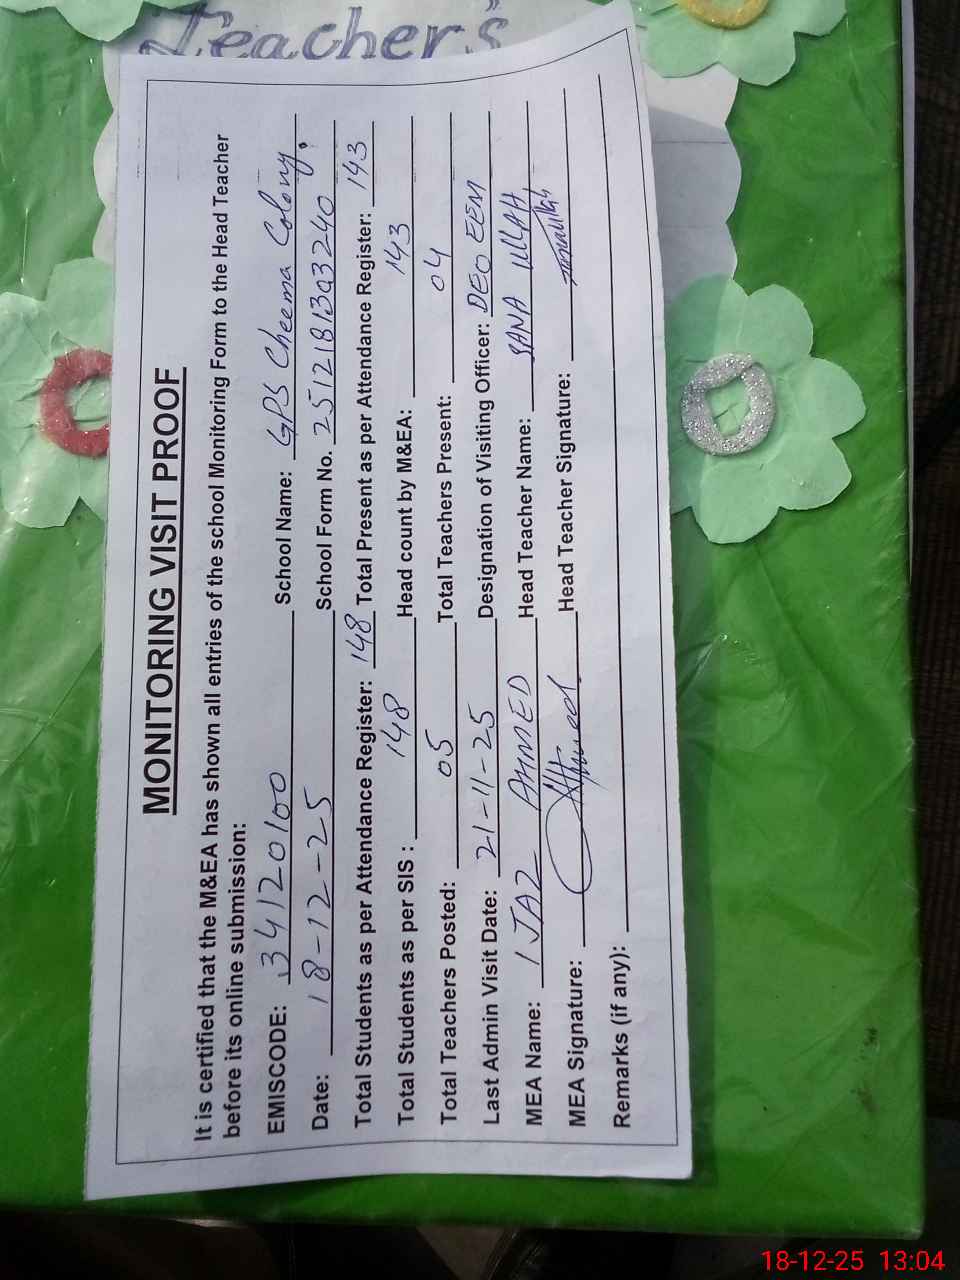 Teacher's
MONITORING VISIT PROOF
It is certified that the M&EA has shown all entries of the school Monitoring Form to the Head Teacher
before its online submission:
EMISCODE: 34120100 School Name: GPS Cheema Colony.
Date: 18-12-25 School Form No. 2512181393240
Total Students as per Attendance Register: 148 Total Present as per Attendance Register: 143
Total Students as per SIS : 148 Head count by M&EA: 143
Total Teachers Posted: 05 Total Teachers Present: 04
Last Admin Visit Date: 21-11-25 Designation of Visiting Officer: DEO EEM
MEA Name: IJAZ AHMED Head Teacher Name: SANA ULLAH
MEA Signature: Ahmed Head Teacher Signature:
Remarks (if any):
18-12-25 13:04